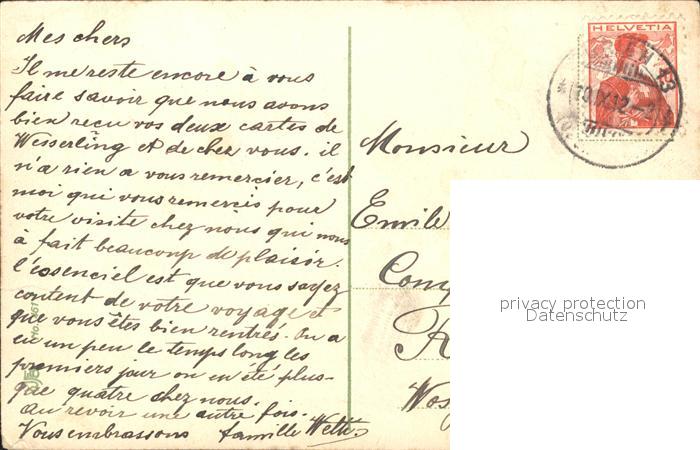 Mes chers
Il me reste encore à vous
faire savoir que nous avons
bien reçu vos deux cartes de
Wesserling et de chez vous. il
n'a rien a vous remercier, c'est
moi qui vous remercis pour
votre visite chez nous qui nous
à fait beaucoup de plaisir.
l'essenciel est que vous sayez
content de votre voyage et
que vous êtes bien rentrés. On a
eu un peu le temps long les
premiers jour on n'été plus-
que quatre chez nous.
au revoir une autre fois.
Vous embrassons famille Welti
HELVETIA
13
Monsieur
Emile
privacy protection
Datenschutz